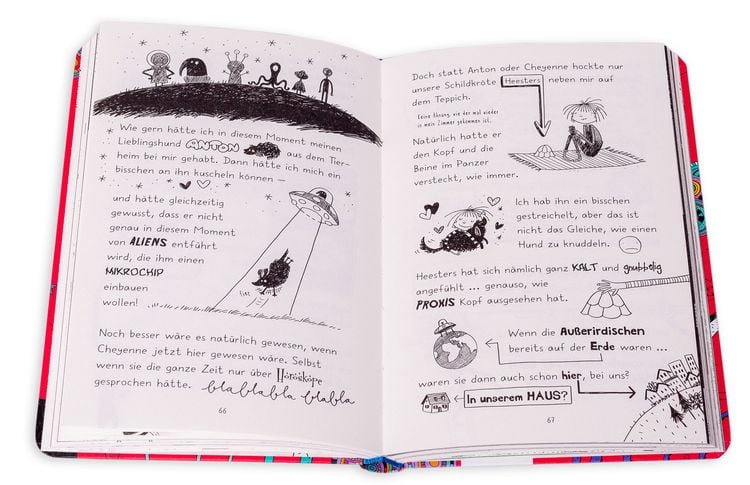 Wie gern hätte ich in diesem Moment meinen
Lieblingshund ANTON aus dem Tier-
heim bei mir gehabt. Dann hätte ich mich ein
bisschen an ihn kuscheln können –
und hätte gleichzeitig
gewusst, dass er nicht
genau in diesem Moment
von ALIENS entführt
wird, die ihm einen
MIKROCHIP
einbauen
wollen!
Noch besser wäre es natürlich gewesen, wenn
Cheyenne jetzt hier gewesen wäre. Selbst
wenn sie die ganze Zeit nur über Horoskope
gesprochen hätte. blablabla blabla
66
Doch statt Anton oder Cheyenne hockte nur
unsere Schildkröte Heesters neben mir auf
dem Teppich.
Keine Ahnung, wie der mal wieder
in mein Zimmer gekommen ist.
Natürlich hatte er
den Kopf und die
Beine im Panzer
versteckt, wie immer.
Ich hab ihn ein bisschen
gestreichelt, aber das ist
nicht das Gleiche, wie einen
Hund zu knuddeln.
Heesters hat sich nämlich ganz KALT und gnubbelig
angefühlt ... genauso, wie
PROXIS Kopf ausgesehen hat.
Wenn die Außerirdischen
bereits auf der Erde waren ...
waren sie dann auch schon hier, bei uns?
In unserem HAUS?
67